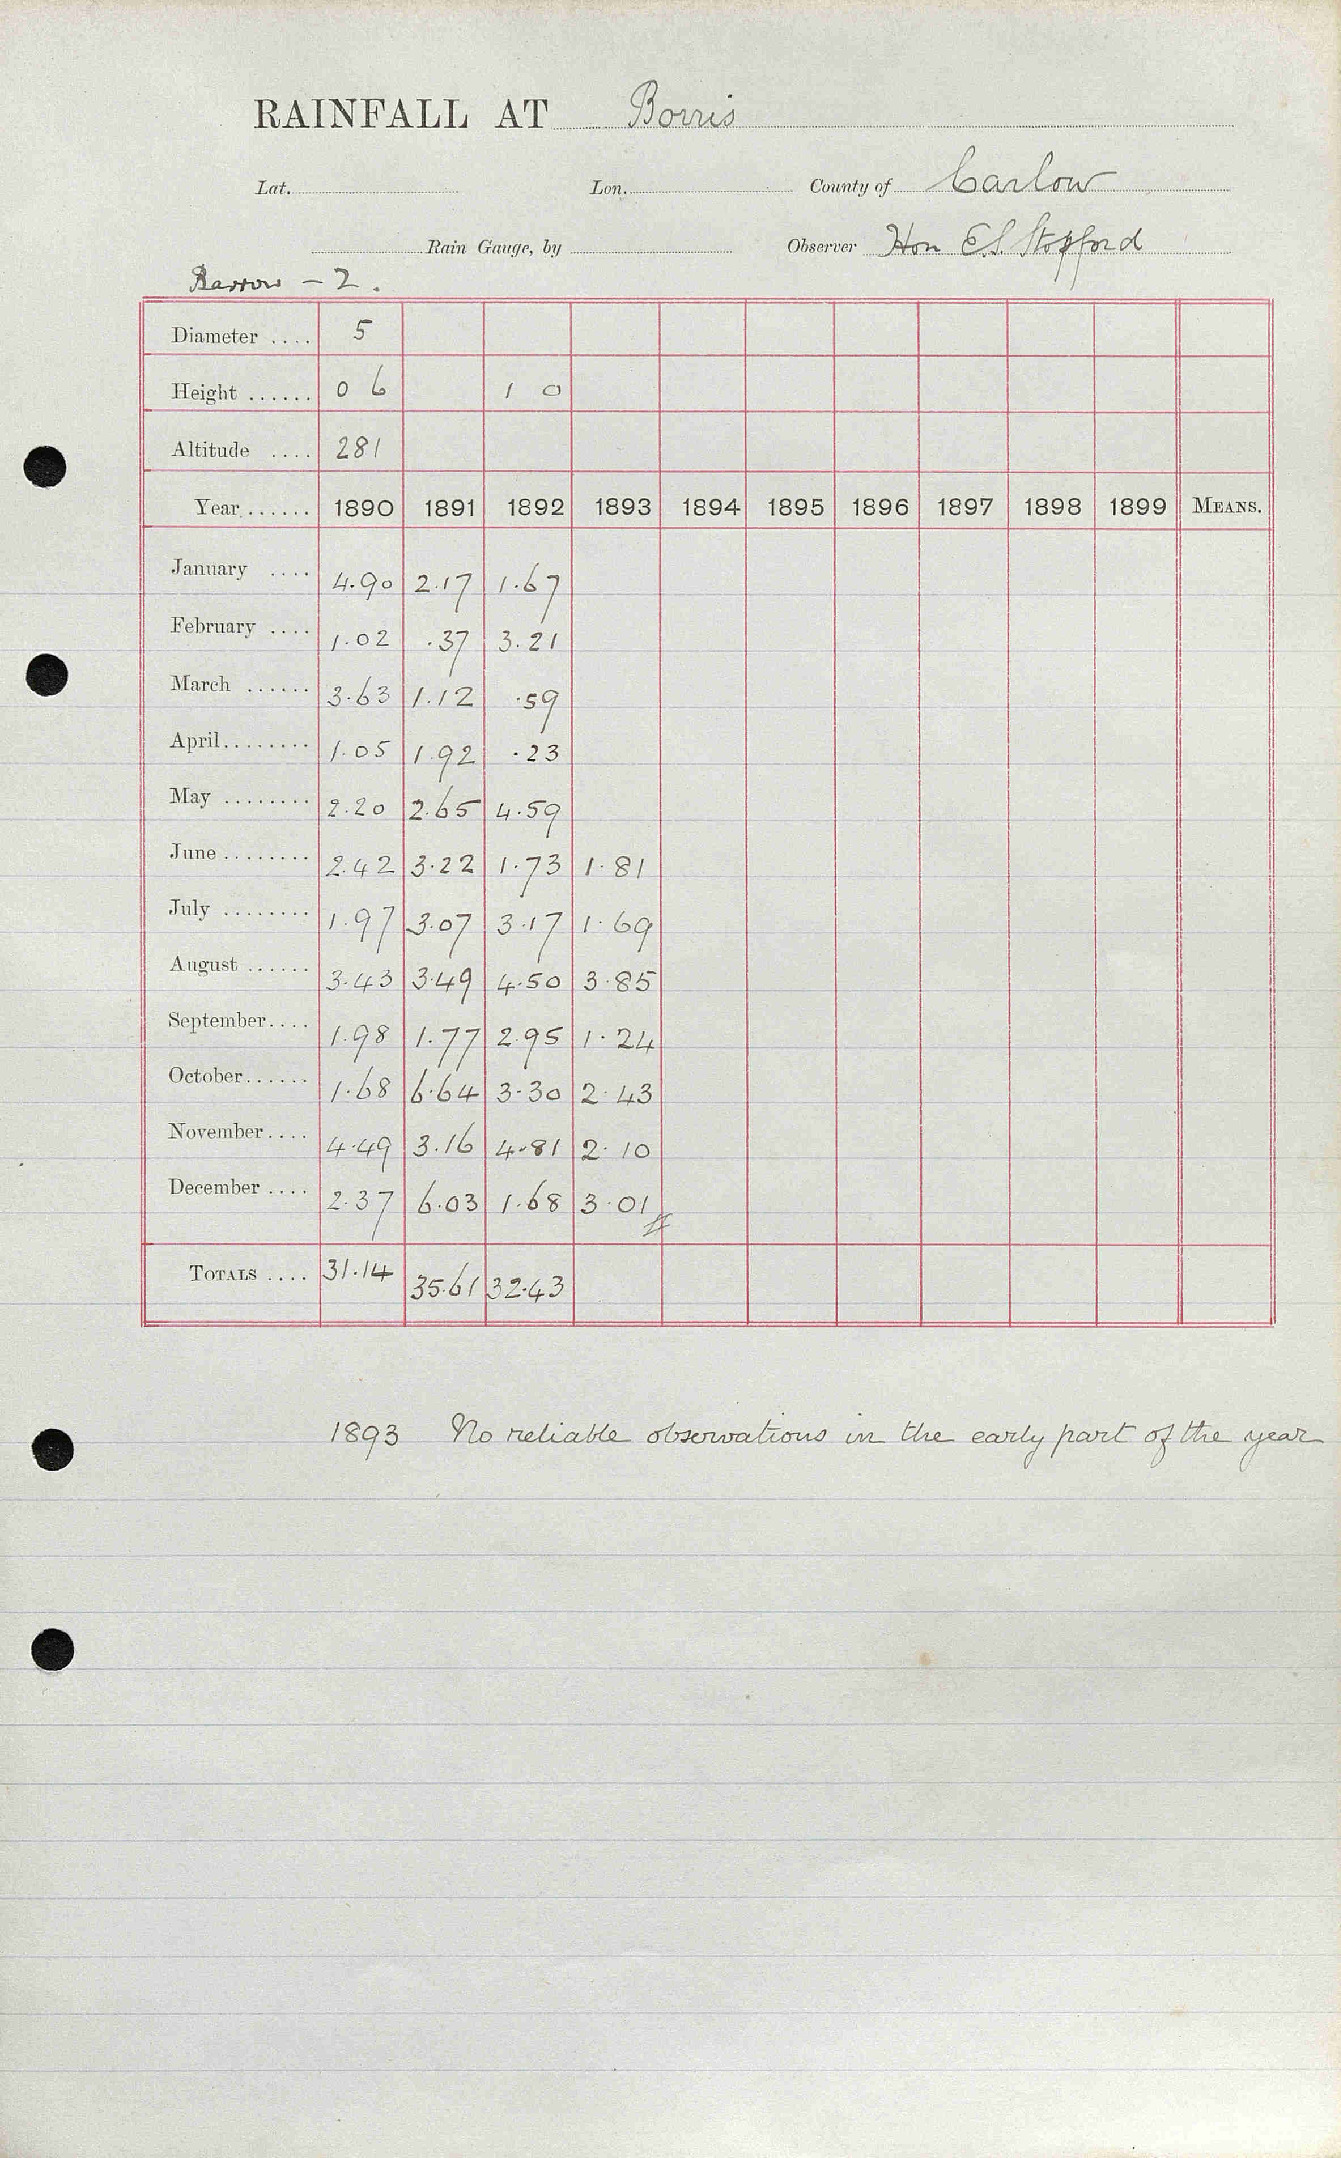 RAINFALL AT Borris
Lat. Lon. County of Carlow
Rain Gauge, by Observer Hon E.S. Stopford
Barrow - 2.
Diameter .... 5
Height ...... 0 6 1 0
Altitude .... 281
Year...... 1890 1891 1892 1893 1894 1895 1896 1897 1898 1899 MEANS.
January .... 4.90 2.17 1.67
February .... 1.02 .37 3.21
March ...... 3.63 1.12 .59
April........ 1.05 1.92 .23
May ........ 2.20 2.65 4.59
June ........ 2.42 3.22 1.73 1.81
July ........ 1.97 3.07 3.17 1.69
August ...... 3.43 3.49 4.50 3.85
September.... 1.98 1.77 2.95 1.24
October...... 1.68 6.64 3.30 2.43
November.... 4.49 3.16 4.81 2.10
December .... 2.37 6.03 1.68 3.01
TOTALS .... 31.14 35.61 32.43
1893 No reliable observations in the early part of the year